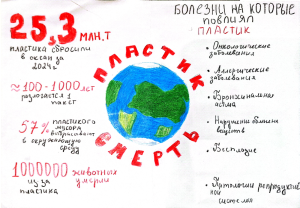 25,3 МЛН.Т
пластика сбросили
в океан за
2024г
≈100-1000 лет
разлагается 1
пакет
57% пластикового
мусора
выбрасывают
в окружающую
среду
1000000 животных
умерли
из за
пластика
ПЛАСТИК
СМЕРТЬ
БОЛЕЗНИ НА КОТОРЫЕ
ПОВЛИЯЛ
ПЛАСТИК
Онкологические
заболевания
Аллергические
заболевания
Бронхиальная
астма
Нарушение обмена
веществ
Бесплодие
Патологии репродуктив
ной
системы